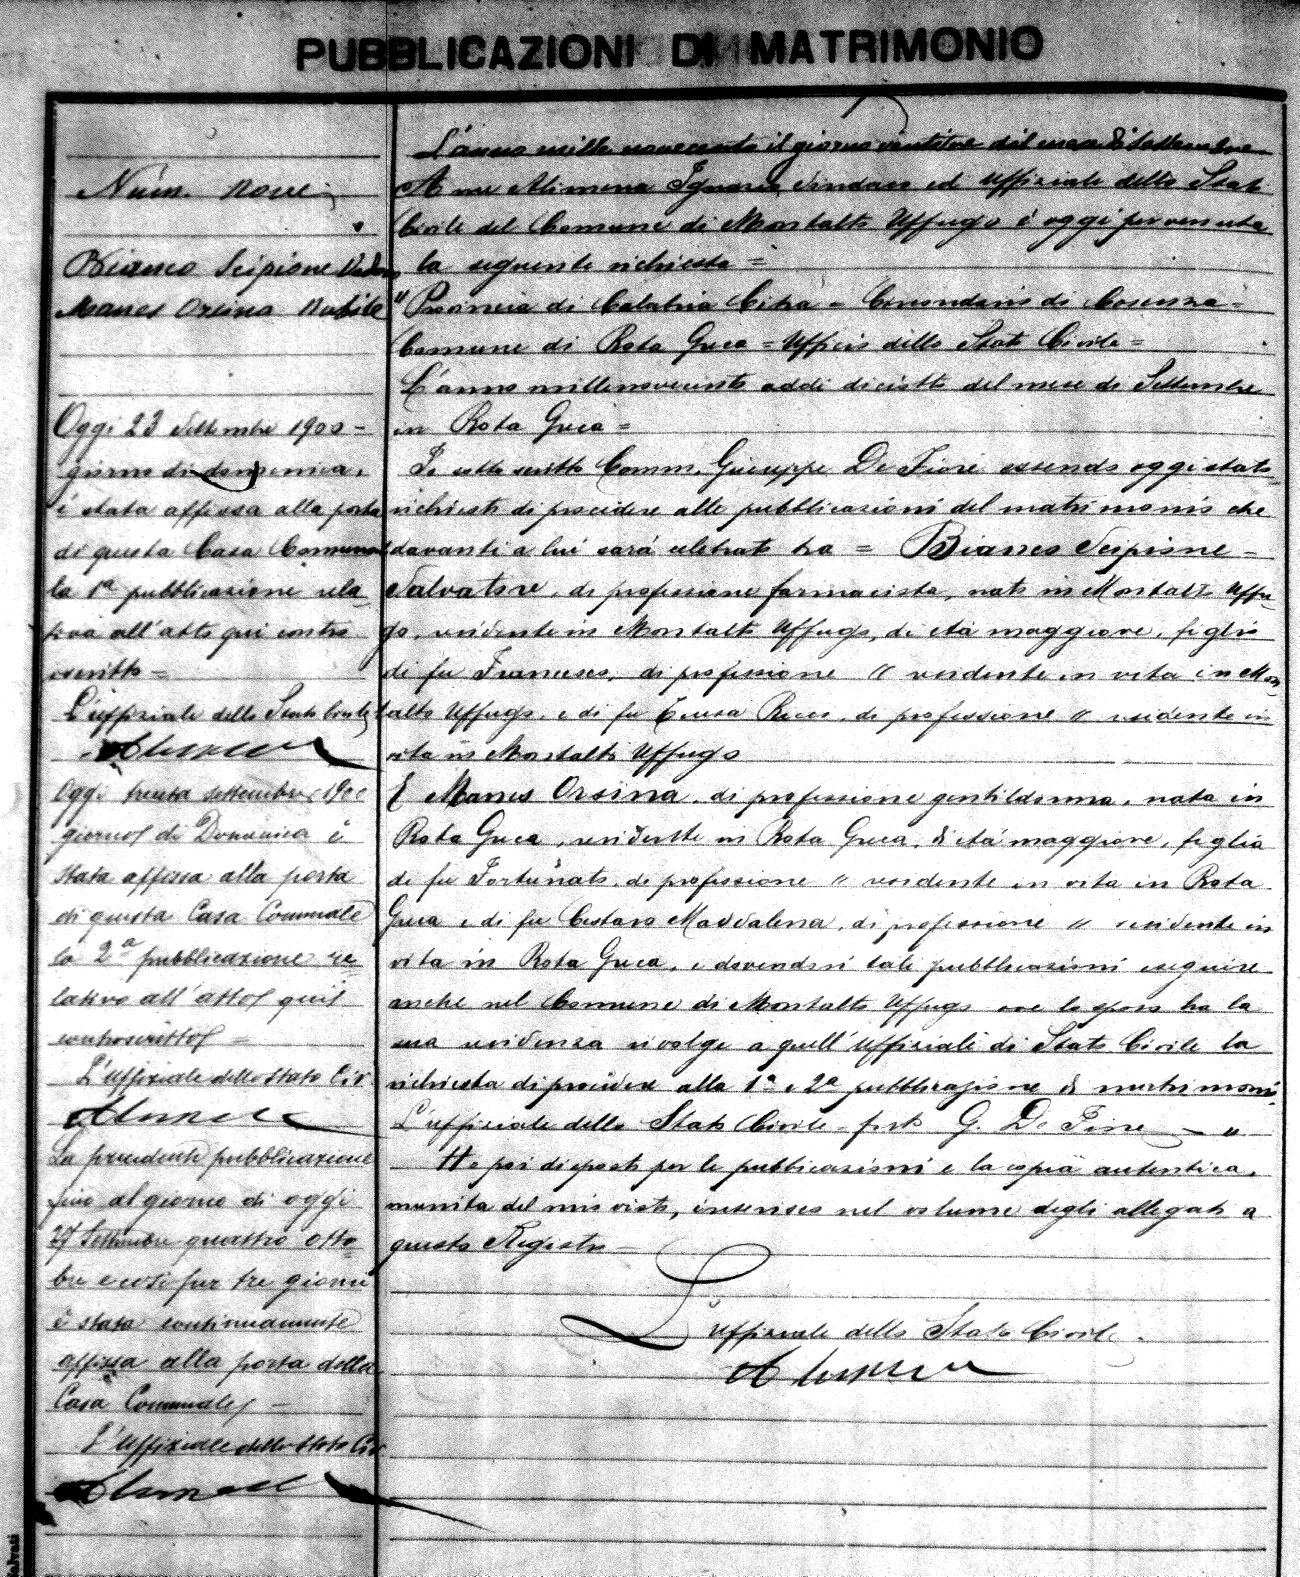 PUBBLICAZIONI DI MATRIMONIO
Num. nove
Bianco Scipione Vedovo
Manes Orsina Nubile
Oggi 23 Settembre 1900 -
giorno di domenica,
è stata affissa alla porta
di questa Casa Comunale
la 1ª pubblicazione rela-
tiva all'atto qui contro
scritto -
L'uffiziale dello Stato Civile
Alimena
Oggi trenta settembre 1900
giorno di Domenica è
stata affissa alla porta
di questa Casa Comunale
la 2ª pubblicazione re
lativa all'atto qui
controscritto =
L'uffiziale dello Stato Civ.
Alimena
La precedente pubblicazione
fino al giorno di oggi
27 Settembre quattro otto-
bre e così per tre giorni
è stata continuamente
affissa alla porta della
Casa Comunale -
L'uffiziale dello Stato Civ.
Alimena
L'anno mille novecento il giorno ventitre del mese di Settembre
A me Alimena Ignazio, Sindaco ed Uffiziale dello Stato
Civile del Comune di Montalto Uffugo è oggi pervenuta
la seguente richiesta =
"Provincia di Calabria Citra = Circondario di Cosenza =
Comune di Rota Greca = Ufficio dello Stato Civile =
L'anno millenovecento addì diciotto del mese di Settembre
in Rota Greca =
Io sottoscritto Comm. Giuseppe De Fiore essendo oggi stato
richiesto di procedere alle pubblicazioni del matrimonio che
davanti a lui sarà celebrato tra = Bianco Scipione -
Salvatore, di professione farmacista, nato in Montalto Uffu-
go, residente in Montalto Uffugo, di età maggiore, figlio
di fu Francesco, di professione " residente in vita in Mon-
talto Uffugo, e di fu Teresa Ricci, di professione " residente in
vita in Montalto Uffugo
E Manes Orsina, di professione gentildonna, nata in
Rota Greca, residente in Rota Greca, di età maggiore, figlia
di fu Fortunato, di professione " residente in vita in Rota
Greca e di fu Cestaro Maddalena, di professione " residente in
vita in Rota Greca, e dovendosi tali pubblicazioni eseguire
anche nel Comune di Montalto Uffugo ove lo sposo ha la
sua residenza rivolge a quell'uffiziale di Stato Civile la
richiesta di procedere alla 1ª e 2ª pubblicazione di matrimonio.
L'uffiziale dello Stato Civile - G. De Fiore - "
Ho poi disposto per le pubblicazioni e la copia autentica,
munita del mio visto, inserisco nel volume degli allegati a
questo Registro -
L'uffiziale dello Stato Civile
Alimena